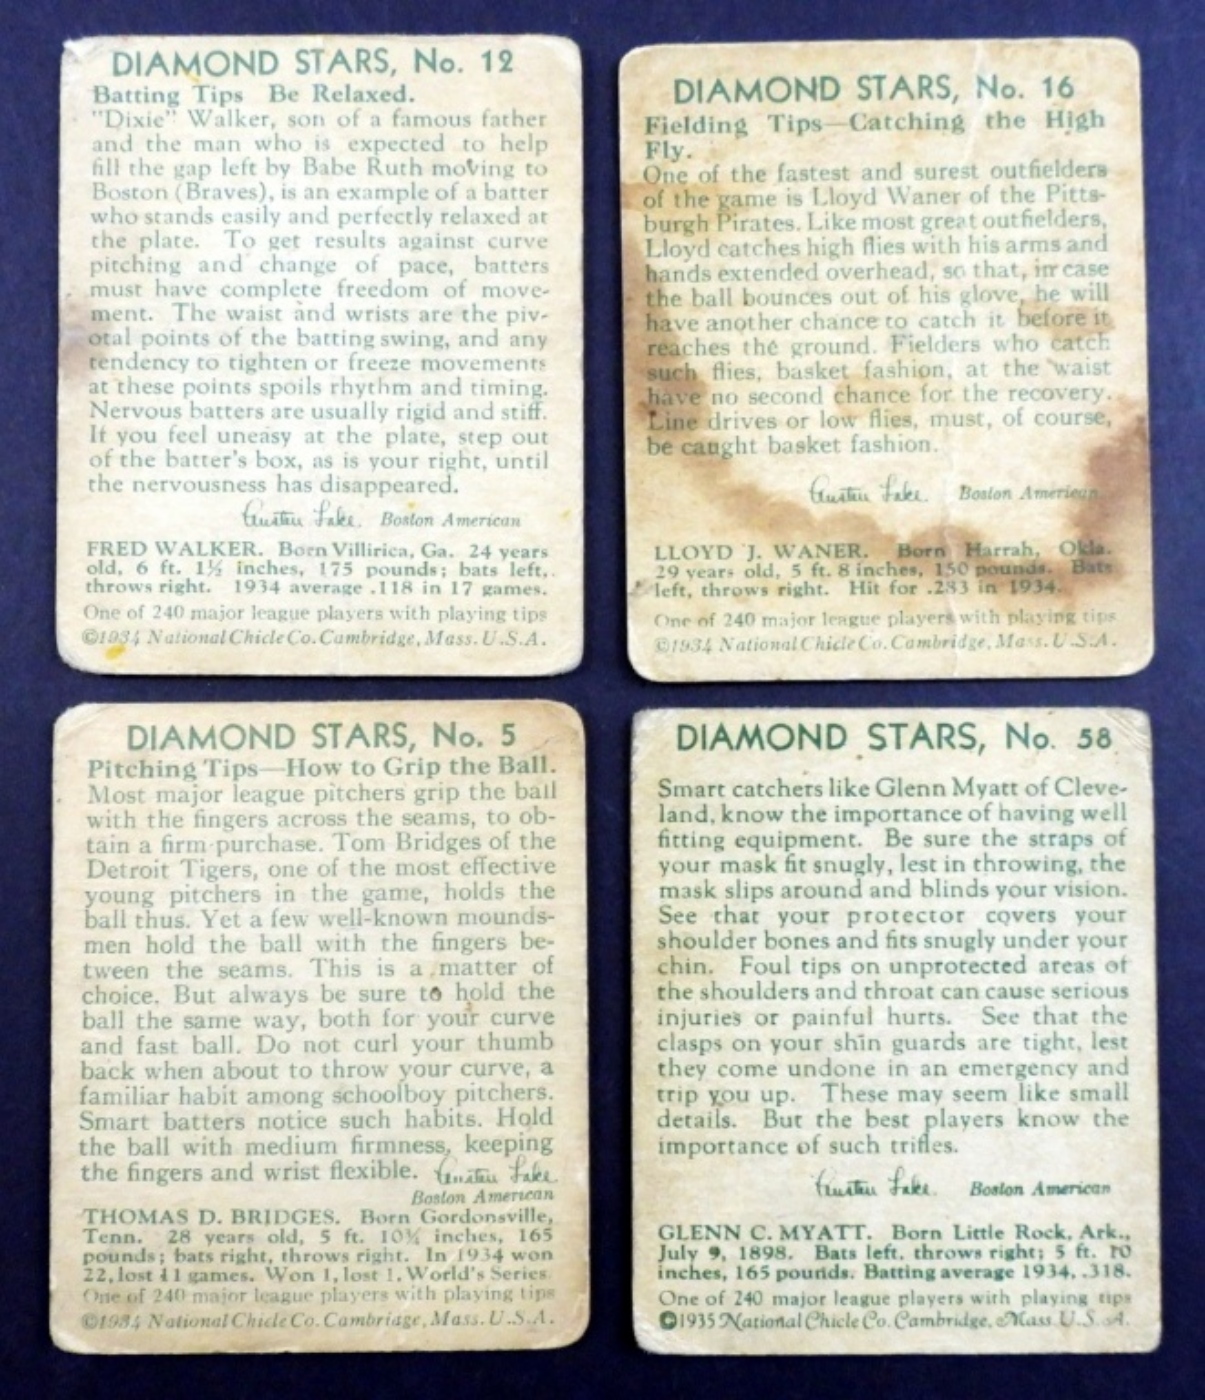 DIAMOND STARS, No. 12
Batting Tips Be Relaxed.
"Dixie" Walker, son of a famous father
and the man who is expected to help
fill the gap left by Babe Ruth moving to
Boston (Braves), is an example of a batter
who stands easily and perfectly relaxed at
the plate. To get results against curve
pitching and change of pace, batters
must have complete freedom of move-
ment. The waist and wrists are the piv-
otal points of the batting swing, and any
tendency to tighten or freeze movements
at these points spoils rhythm and timing.
Nervous batters are usually rigid and stiff.
If you feel uneasy at the plate, step out
of the batter's box, as is your right, until
the nervousness has disappeared.
Austen Lake. Boston American
FRED WALKER. Born Villirica, Ga. 24 years
old, 6 ft. 1½ inches, 175 pounds; bats left,
throws right. 1934 average .118 in 17 games.
One of 240 major league players with playing tips
©1934 National Chicle Co. Cambridge, Mass. U.S.A.
DIAMOND STARS, No. 16
Fielding Tips—Catching the High
Fly.
One of the fastest and surest outfielders
of the game is Lloyd Waner of the Pitts-
burgh Pirates. Like most great outfielders,
Lloyd catches high flies with his arms and
hands extended overhead, so that, in case
the ball bounces out of his glove, he will
have another chance to catch it before it
reaches the ground. Fielders who catch
such flies, basket fashion, at the waist
have no second chance for the recovery.
Line drives or low flies, must, of course,
be caught basket fashion.
Austen Lake. Boston American
LLOYD J. WANER. Born Harrah, Okla.
29 years old, 5 ft. 8 inches, 150 pounds. Bats
left, throws right. Hit for .283 in 1934.
One of 240 major league players with playing tips
©1934 National Chicle Co. Cambridge, Mass. U.S.A.
DIAMOND STARS, No. 5
Pitching Tips—How to Grip the Ball.
Most major league pitchers grip the ball
with the fingers across the seams, to ob-
tain a firm purchase. Tom Bridges of the
Detroit Tigers, one of the most effective
young pitchers in the game, holds the
ball thus. Yet a few well-known mounds-
men hold the ball with the fingers be-
tween the seams. This is a matter of
choice. But always be sure to hold the
ball the same way, both for your curve
and fast ball. Do not curl your thumb
back when about to throw your curve, a
familiar habit among schoolboy pitchers.
Smart batters notice such habits. Hold
the ball with medium firmness, keeping
the fingers and wrist flexible. Austen Lake.
Boston American
THOMAS D. BRIDGES. Born Gordonsville,
Tenn. 28 years old, 5 ft. 10½ inches, 165
pounds; bats right, throws right. In 1934 won
22, lost 11 games. Won 1, lost 1, World's Series
One of 240 major league players with playing tips
©1934 National Chicle Co. Cambridge, Mass. U.S.A.
DIAMOND STARS, No. 58
Smart catchers like Glenn Myatt of Cleve-
land, know the importance of having well
fitting equipment. Be sure the straps of
your mask fit snugly, lest in throwing, the
mask slips around and blinds your vision.
See that your protector covers your
shoulder bones and fits snugly under your
chin. Foul tips on unprotected areas of
the shoulders and throat can cause serious
injuries or painful hurts. See that the
clasps on your shin guards are tight, lest
they come undone in an emergency and
trip you up. These may seem like small
details. But the best players know the
importance of such trifles.
Austen Lake. Boston American
GLENN C. MYATT. Born Little Rock, Ark.,
July 9, 1898. Bats left, throws right; 5 ft. 10
inches, 165 pounds. Batting average 1934, .318.
One of 240 major league players with playing tips
©1935 National Chicle Co. Cambridge, Mass. U.S.A.